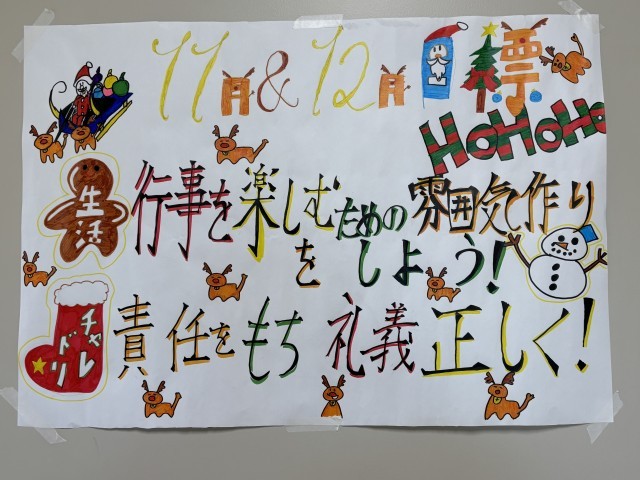 11月&12月目標
HoHoHo
生活
行事を楽しむための雰囲気作り
をしよう!
チャレ
ドリ
責任をもち礼義正しく!